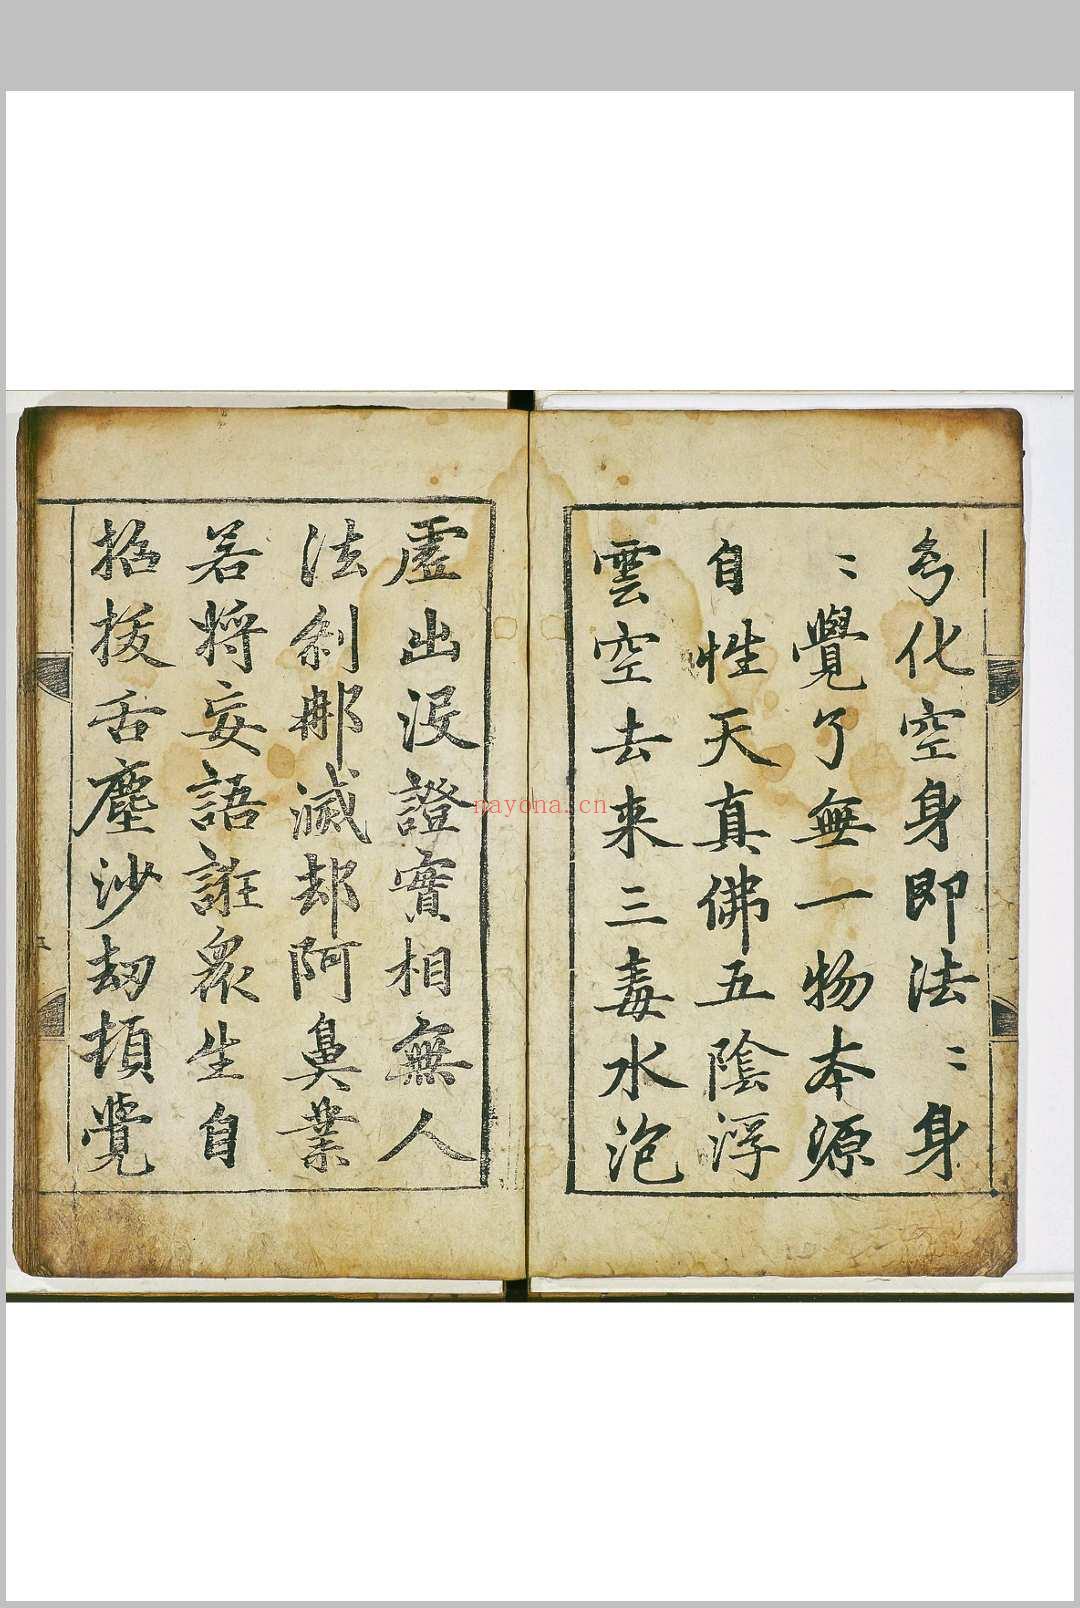 幻化空身即法〻身
〻覺了無一物本源
自性天真佛五陰浮
雲空去来三毒水泡
虛出没證實相無人
法刹那滅却阿鼻業
若將妄語誑衆生自
招拔舌塵沙劫頓覺
nayona.cn